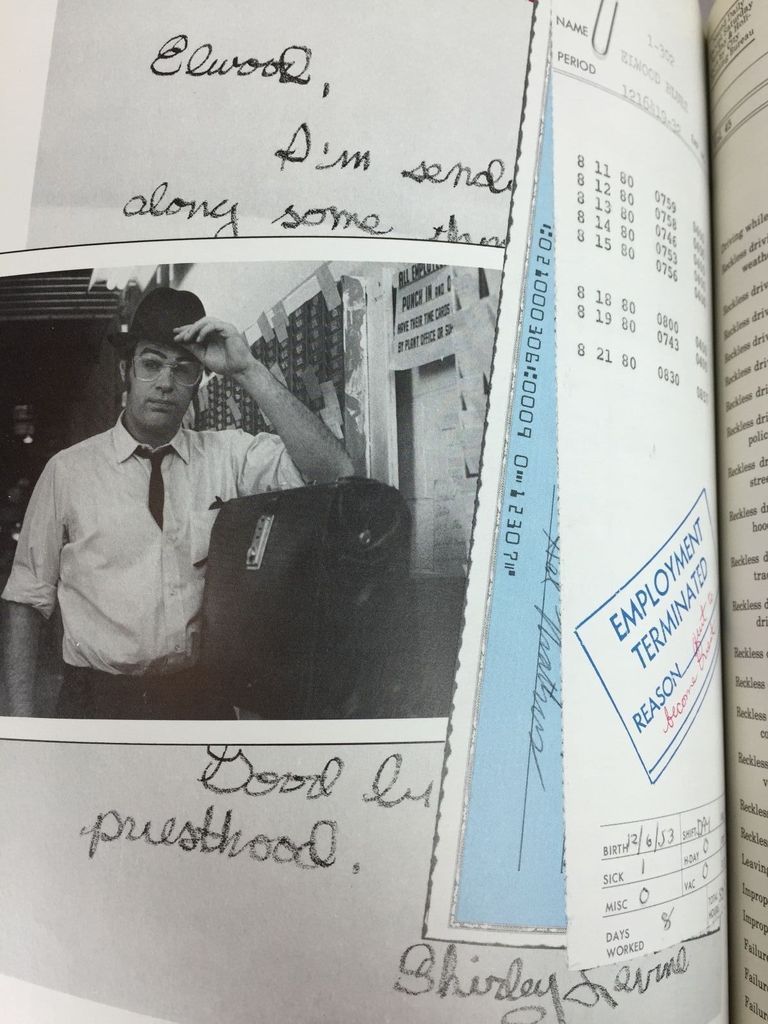 Elwood,
I'm send
along some
ALL
PUNCH IN and O
HAVE THEIR TIME CARDS
BY PLANT OFFICE OR
Good lu
priesthood.
Shirley Levine
NAME 1-302
ELWOOD BLUES
PERIOD
8 11 80 0759
8 12 80 0758
8 13 80 0746
8 14 80 0753
8 15 80 0756
8 18 80 0800
8 19 80 0743
8 21 80 0830
EMPLOYMENT
TERMINATED
REASON
become Priest
BIRTH 12/6/53 SHIFT DAY
SICK 1 H-DAY 0
MISC 0 VAC 0
DAYS
WORKED 8
Saturday
Bureau
Driving while
Reckless driv
weathe
Reckless driv
Reckless driv
Reckless driv
Reckless dri
Reckless dri
polic
Reckless dr
stre
Reckless d
hoo
Reckless d
tra
Reckless d
dri
Reckless
Reckless
Reckless
co
Reckless
v
Reckless
Reckles
Leaving
Improp
Improp
Failure
Failur
Failu